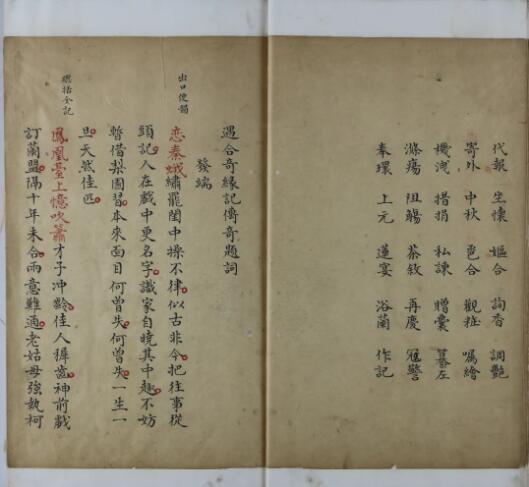 代報 生懷 嫗合 詢香 調艷
寄外 中秋 合 觀粧 囑繪
機洩 措捐 私諫 贈囊 左
滌瘍 阻觴 茶敘 再慶 冠警
奉環 上元 蓮宴 浴蘭 作記
遇合奇緣記傳奇題詞
發端
出口便
恋秦娥繡罷閨中操不律似古非今把往事從
頭記人在戲中更名字識家自曉其中趣不妨
暫借梨園習本來面目何曾失何曾失一生一
旦天然佳匹
括全記
鳳凰臺上憶吹簫才子冲齡佳人穉齒神前戲
訂蘭盟隔十年未合兩意難通老姑母強執柯